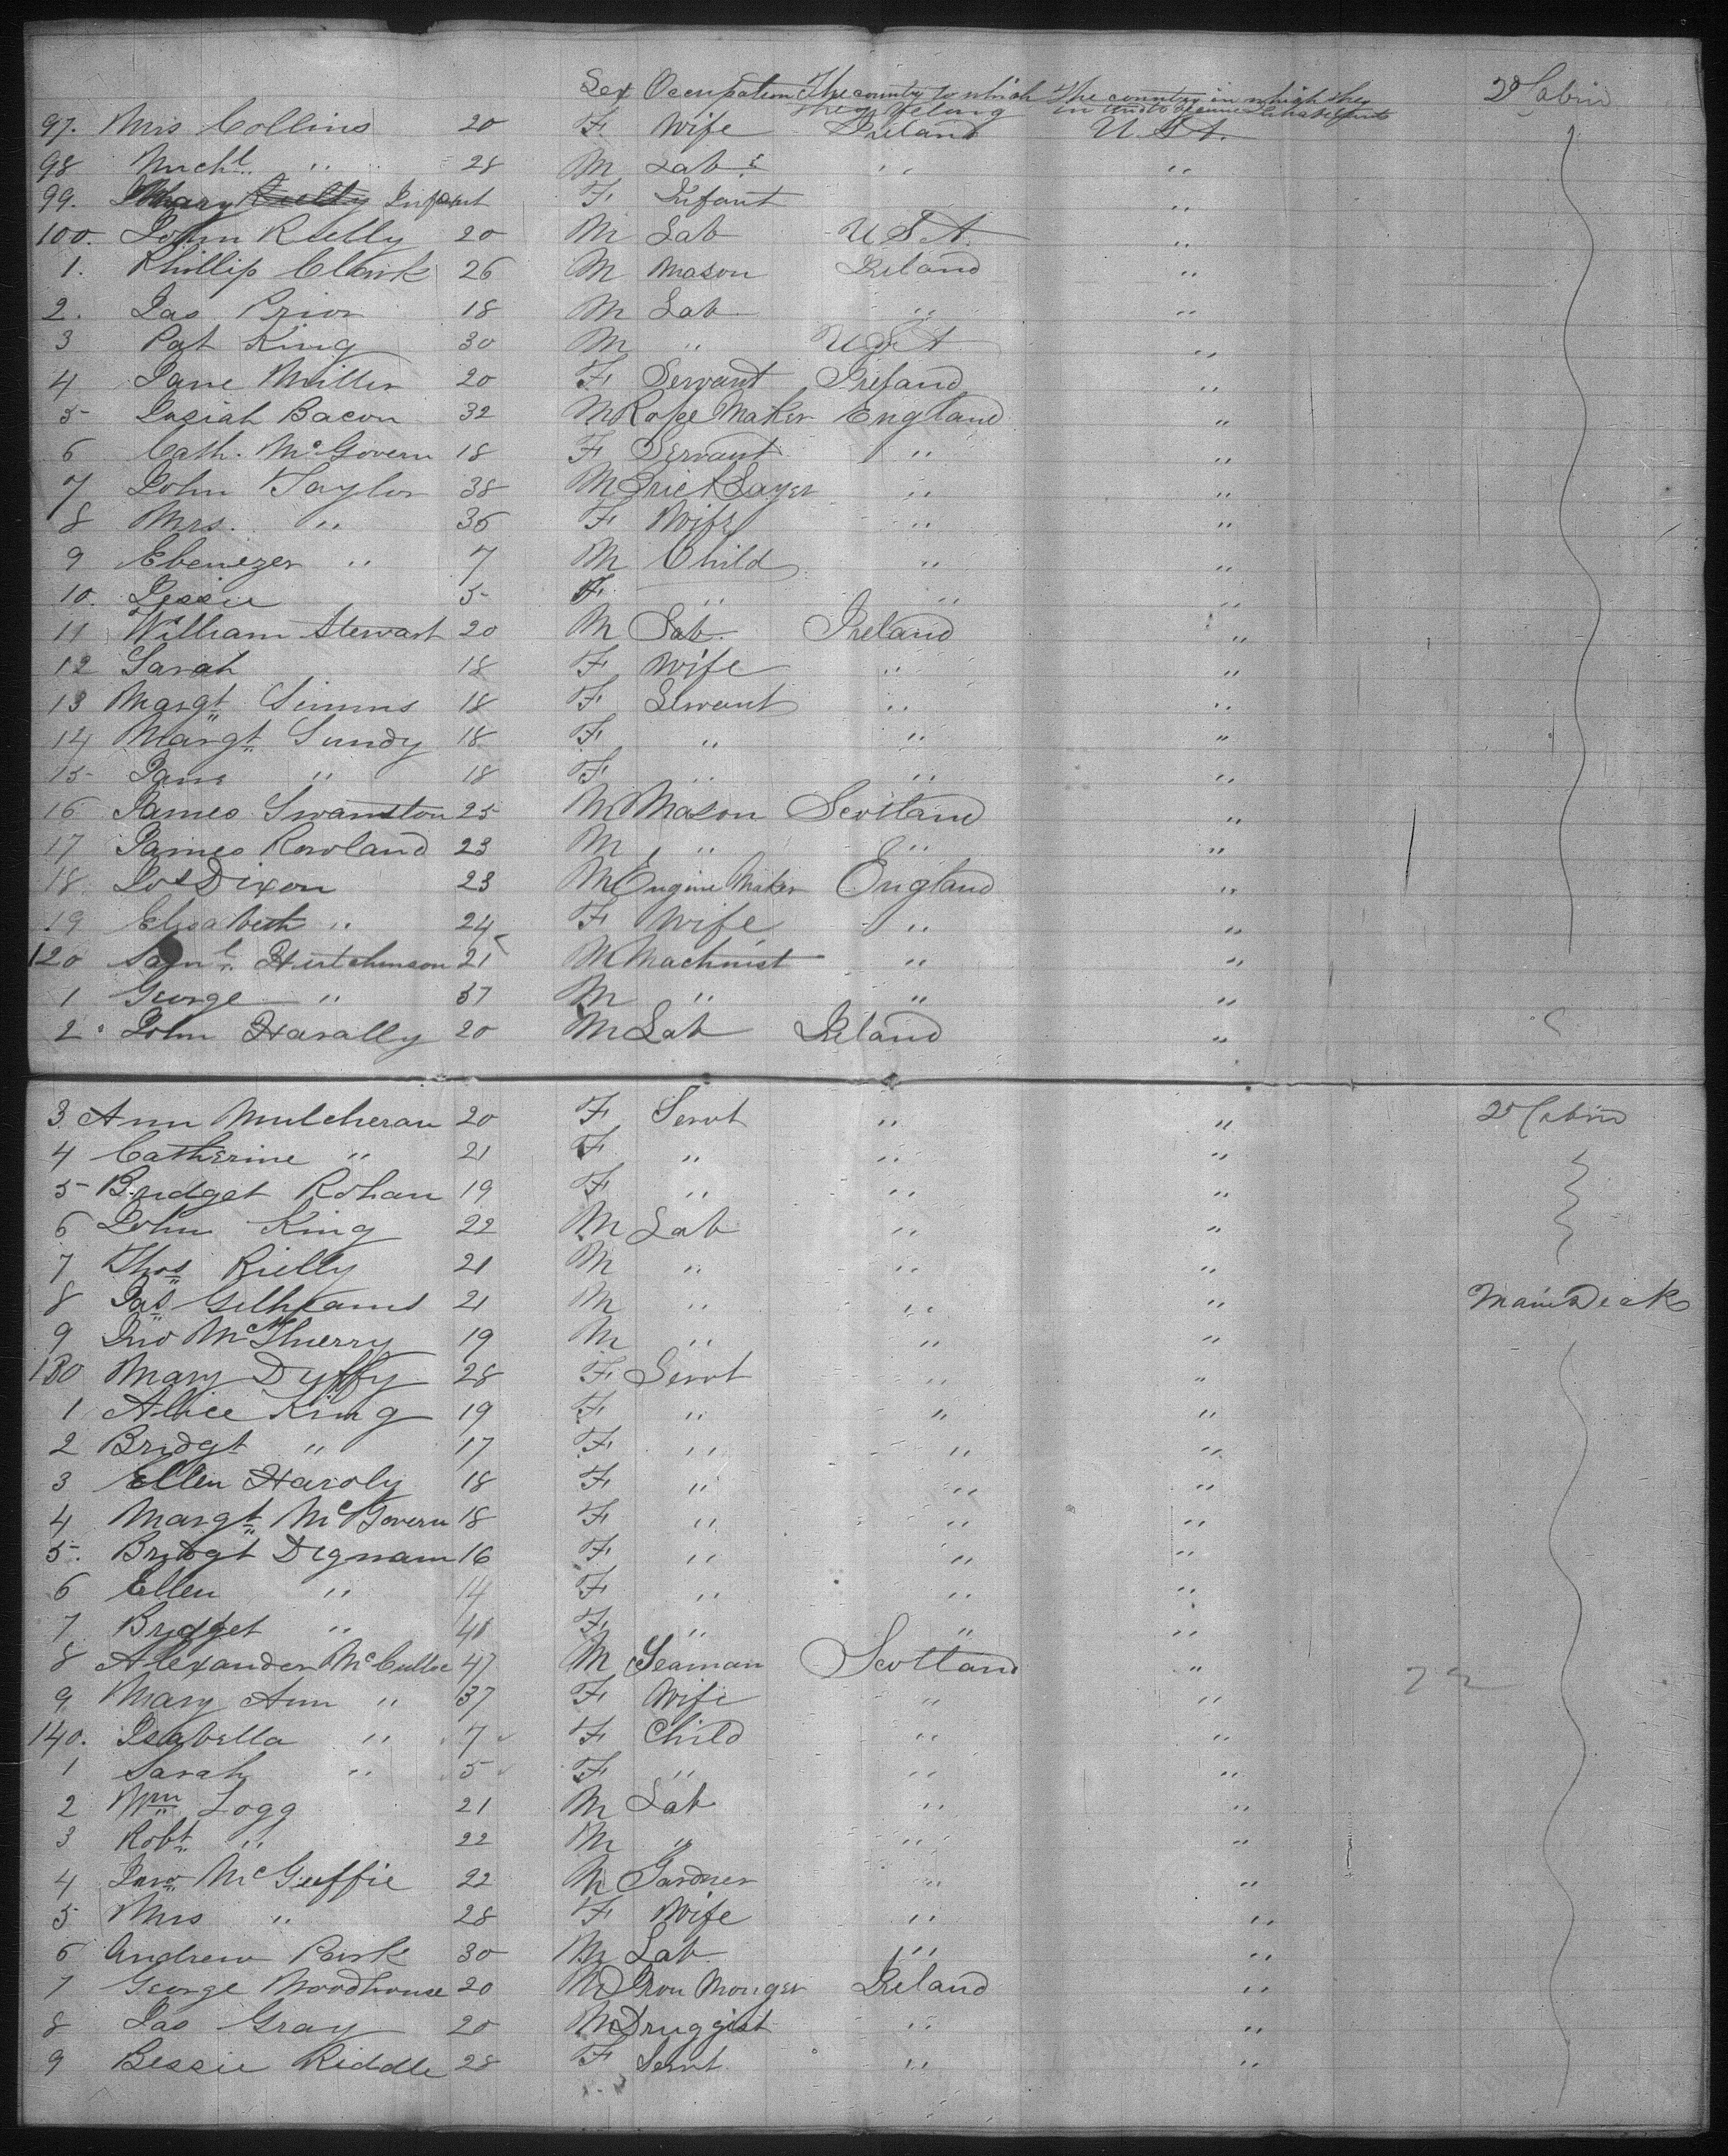 Sex Occupation The country to which they belong The country in which they intend to become inhabitants 2d Cabin
97. Mrs Collins 20 F Wife Ireland U.S.A.
98 Michl " 28 M Labr " "
99. Mary Rielly Infant F Infant "
100. John Rielly 20 M Lab U S A. "
1. Phillip Clark 26 M Mason Ireland "
2. Jas Prior 18 M Lab " "
3 Pat King 30 M " U S A "
4 Jane Miller 20 F Servant Ireland "
5 Josiah Bacon 32 M Rope Maker England "
6 Cath. McGovern 18 F Servant " "
7 John Taylor 38 M Brick Layer " "
8 Mrs. " 36 F Wife " "
9 Ebenezer " 7 M Child " "
10. Jessie 5 F " " "
11 William Stewart 20 M Lab. Ireland "
12 Sarah 18 F Wife " "
13 Margt Simms 18 F Servant " "
14 Margt Lundy 18 F " " "
15 Jane " 18 F " " "
16 James Swanston 25 M Mason Scotland "
17 James Rowland 23 M " " "
18. Jos Dixon 23 M Engine Maker England "
19 Elizabeth " 24 F Wife " "
120 Saml Hutchinson 21 M Machinist " "
1 George " 37 M " " "
2 John Harally 20 M Lab Ireland "
3 Ann Mulcheran 20 F Servt " " 2d Cabin
4 Catherine " 21 F " " "
5 Bridget Rohan 19 F " " "
6 John King 22 M Lab " "
7 Thos Rielly 21 M " " "
8 Jas 21 M " " " Main Deck
9 Jno McSherry 19 M " " "
130 Mary Duffy 28 F Servt " "
1 Alice King 19 F " " "
2 Bridgt " 17 F " " "
3 Ellen Haroly 18 F " " "
4 Margt McGovern 18 F " " "
5. Bridgt Dignam 16 F " " "
6 Ellen " 14 F " " "
7 Bridget " 41 F " " "
8 Alexander McCulloc 47 M Seaman Scotland "
9 Mary Ann " 37 F Wife " "
140. Isabella " 7 F Child " "
1 Sarah " 5 F " " "
2 Wm Logg 21 M Lab " "
3 Robt " 22 M " " "
4 Jno McGuffie 22 M Gardner " "
5 Mrs " 28 F Wife " "
6 Andrew Park 30 M Lab " "
7 George Woodhouse 20 M Iron Monger Ireland "
8 Jas Gray 20 M Druggist " "
9 Bessie Riddle 28 F Servt " "